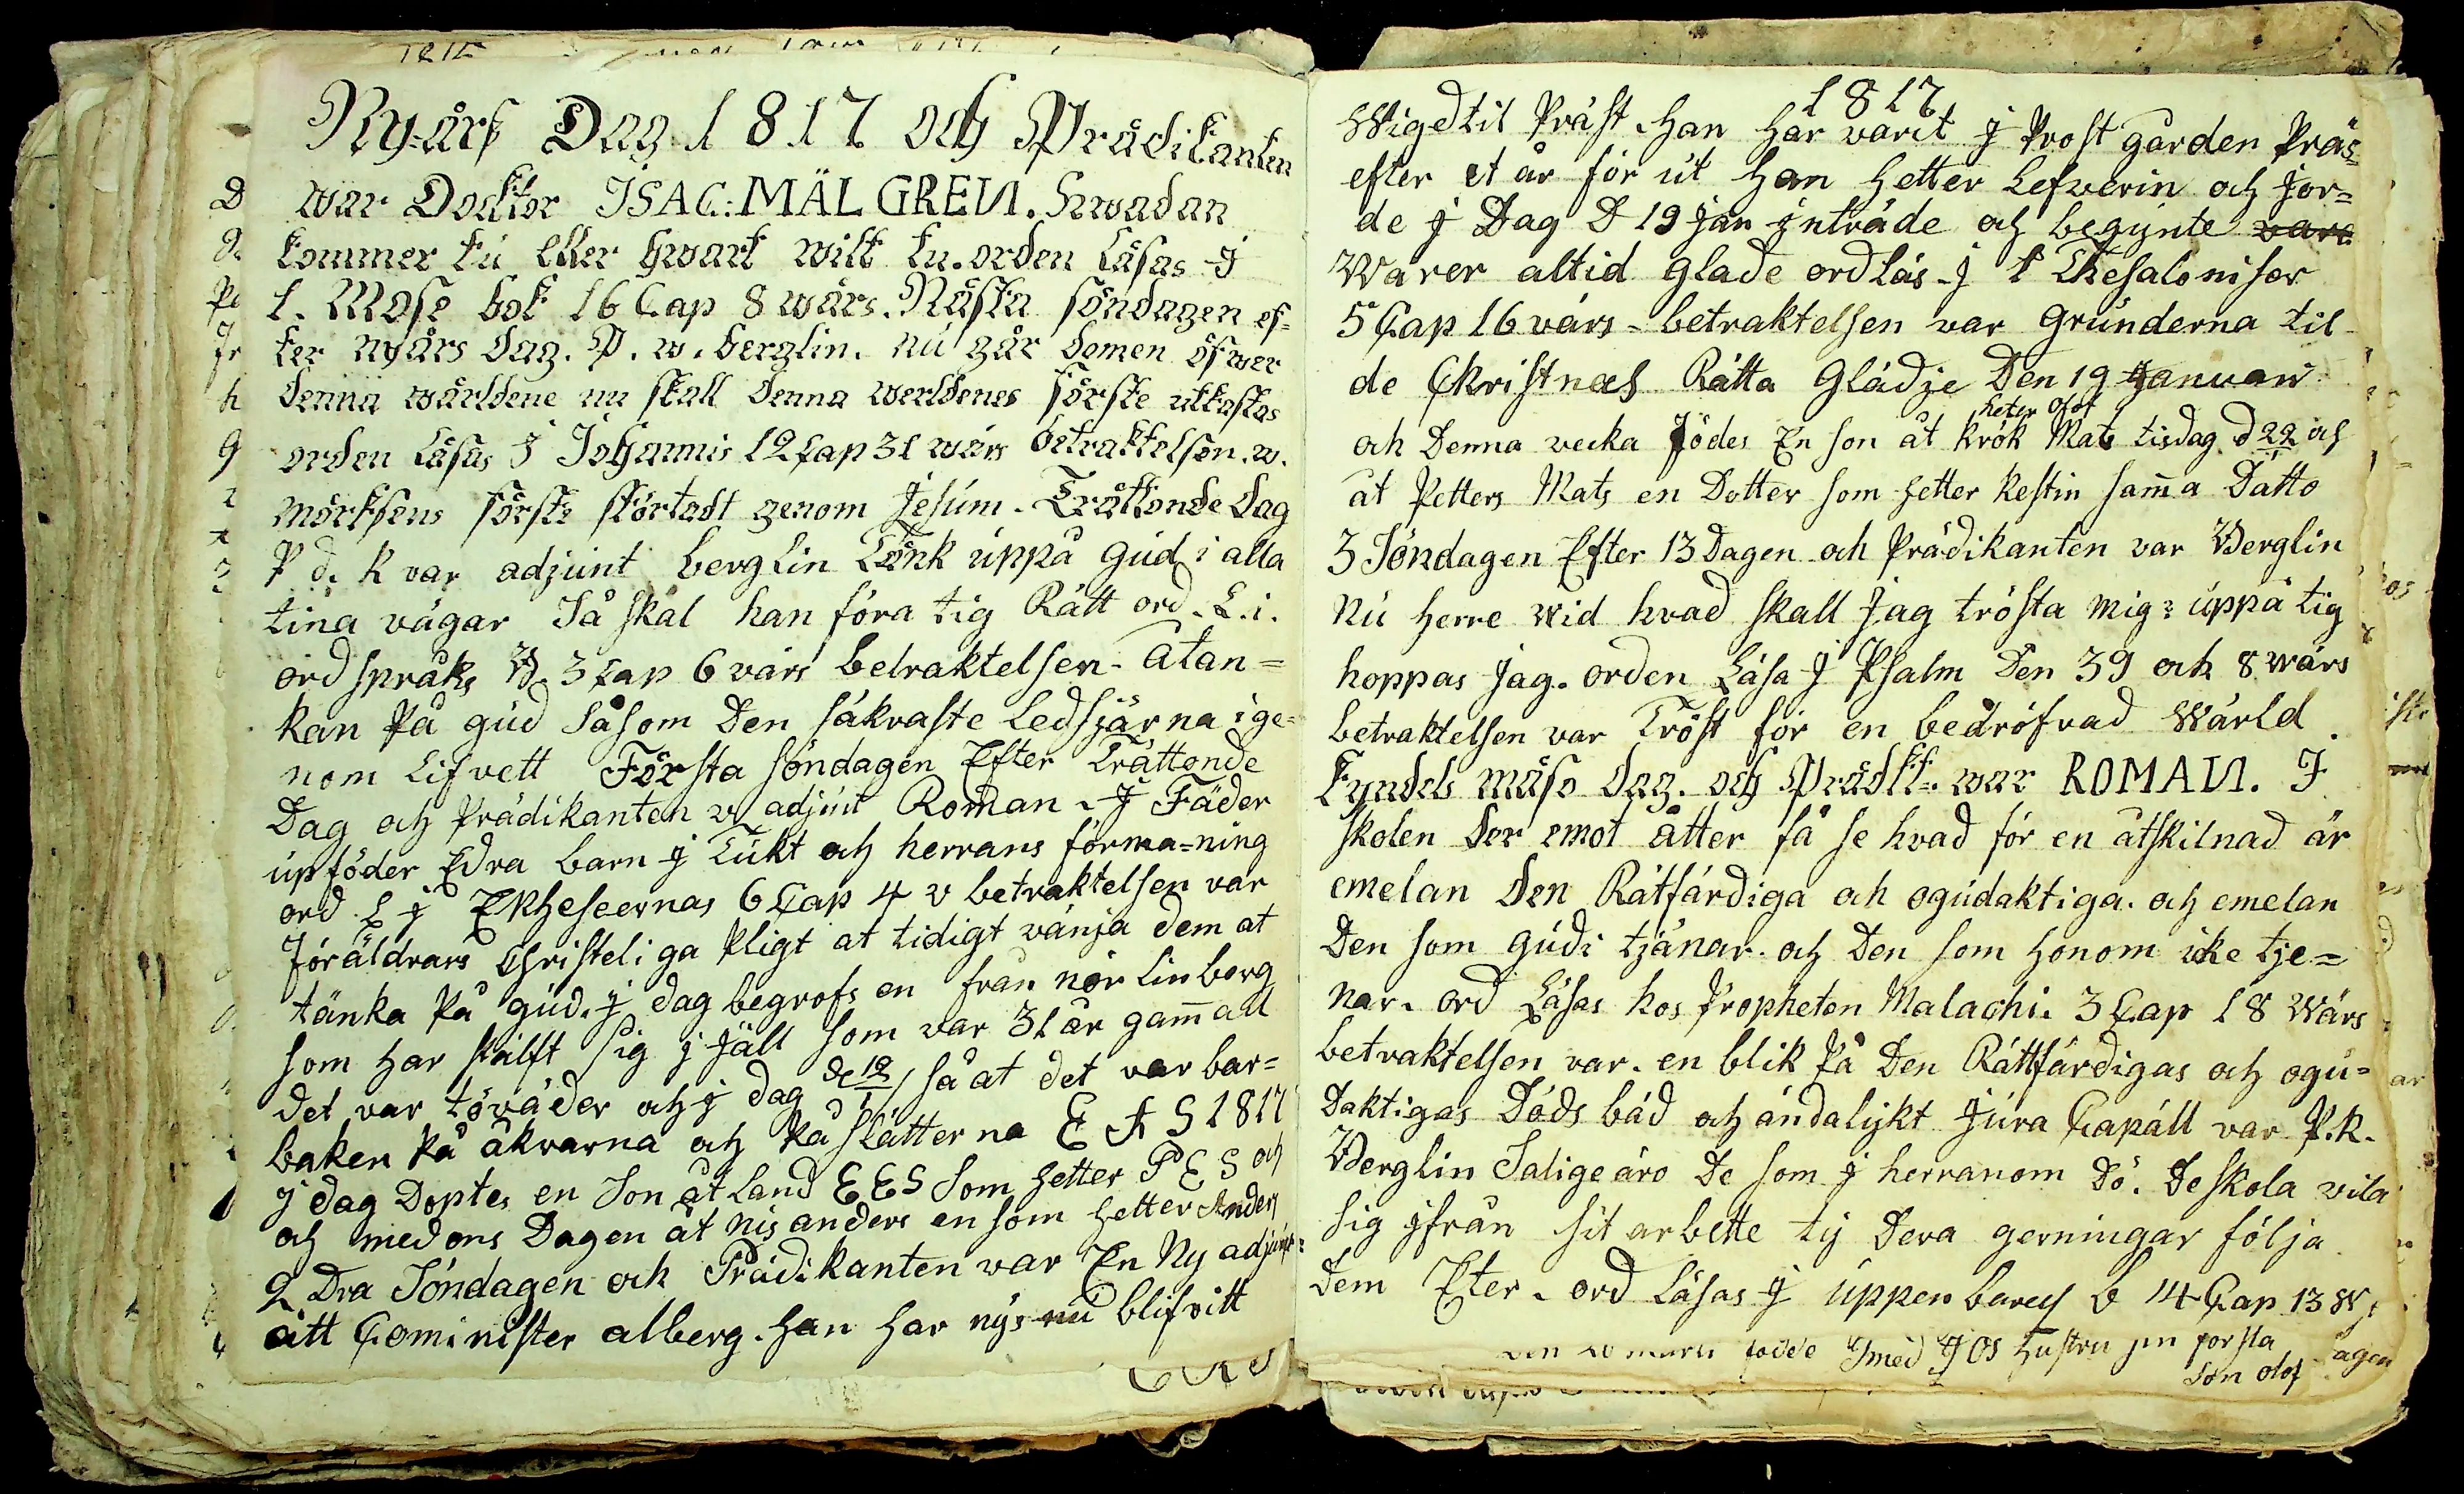 Ny-års Dag 1817 och Prädikanten
war Docktor ISAC: MÄLGREN. hwadan
kommer tu eller hwart wilt tu. orden Läsas J
1. Mose bok 16 Cap 8 wärs. Nästa söndagen ef=
ter nyårs dag. P. w. berglin. nu går domen öfwer
denna wärldene nu skall denna werldenes förste utkastas
orden Läsas J Johannis 12 Cap 31 wärs betraktelsen. w.
mörksens förste störtadt genom Jesum. Trättonde dag
P d. k var adjunt berglin Tänk uppå gud i alla
tina vägar Så skal han föra tig Rätt ord. L. i.
ordspråks B. 3 Cap 6 värs betraktelsen. åtan=
kan På gud såsom Den säkraste Ledstjärna ige=
nom Lifvett Första söndagen Efter Trättonde
Dag och Prädikanten v adjunt Roman. J Fäder
upföder Edra barn j Tukt och herrans förma=ning
ord L j Ekheseernas 6 Cap 4 v betraktelsen var
Föräldrars Christeliga Pligt at tidigt vänja dem at
tänka På gud. j dag begrofs en från nör Linborg
som har skälft sig j fäll som var 31 år gam̄all
det var töväder och j dag de 12/1 så at det var bar=
baken På åkrarna och På slätterna E A S 1817
j dag Doptes en Son åt Land E E S Som hetter P E S och
och med ons Dagen åt nis anders en som hetter Anders
2 Dra Söndagen och Prädikanten var En Ny adjunt=
ått Cominister alberg. han har nys nu blifvitt
1817
Wigd til Präst. han har varit j Prostgården Präs=
efter et år för ut han hetter Lefverin och Jor=
de j Dag D 19 jan jnträde och begynte vara
Warer altid glade ord Läs. j 1 Thesaloniser
5 Cap 16 värs - betraktelsen var grunderna til
de Christnas Rätta Glädje Den 19 Januari
heter olof
och Denna vecka Födes En son åt krok Mats tisdag. d 22 och
åt Petters Mats en Dotter som hetter Kestin sam̄a Datto
3 Söndagen Efter 13 Dagen och Prädikanten var Berglin
Nu herre wid hvad skall jag trösta mig? uppå tig
hoppas jag. orden Läsa J Psalm Den 39 och 8 wärs
betraktelsen var Tröst för en bedröfvad Wärld.
Kyndels mäso dag. och Prädkt. war ROMAN. J
skolen der emot åtter få se hvad för en åtskilnad är
emelan den Rätfärdiga och ogudaktiga. och emelan
Den som gudi tjänar. och Den som honom icke tje=
nar. ord Läsas hos Propheten Malachi. 3 Cap 18 Wärs
betraktelsen var. en blik På Den Rättfärdigas och ogu=
daktigas Döds bäd och ändalykt jura Capäll var P. k.
Berglin Salige äro De som j herranom Dö. De skola vila
sig jfrån sit arbette ty Dera gerningar följa
Dem Efter. ord Läsas j uppenbarels b 14 Cap 13 W.
födde Jmed J OS hustru sin forsta
Son olof